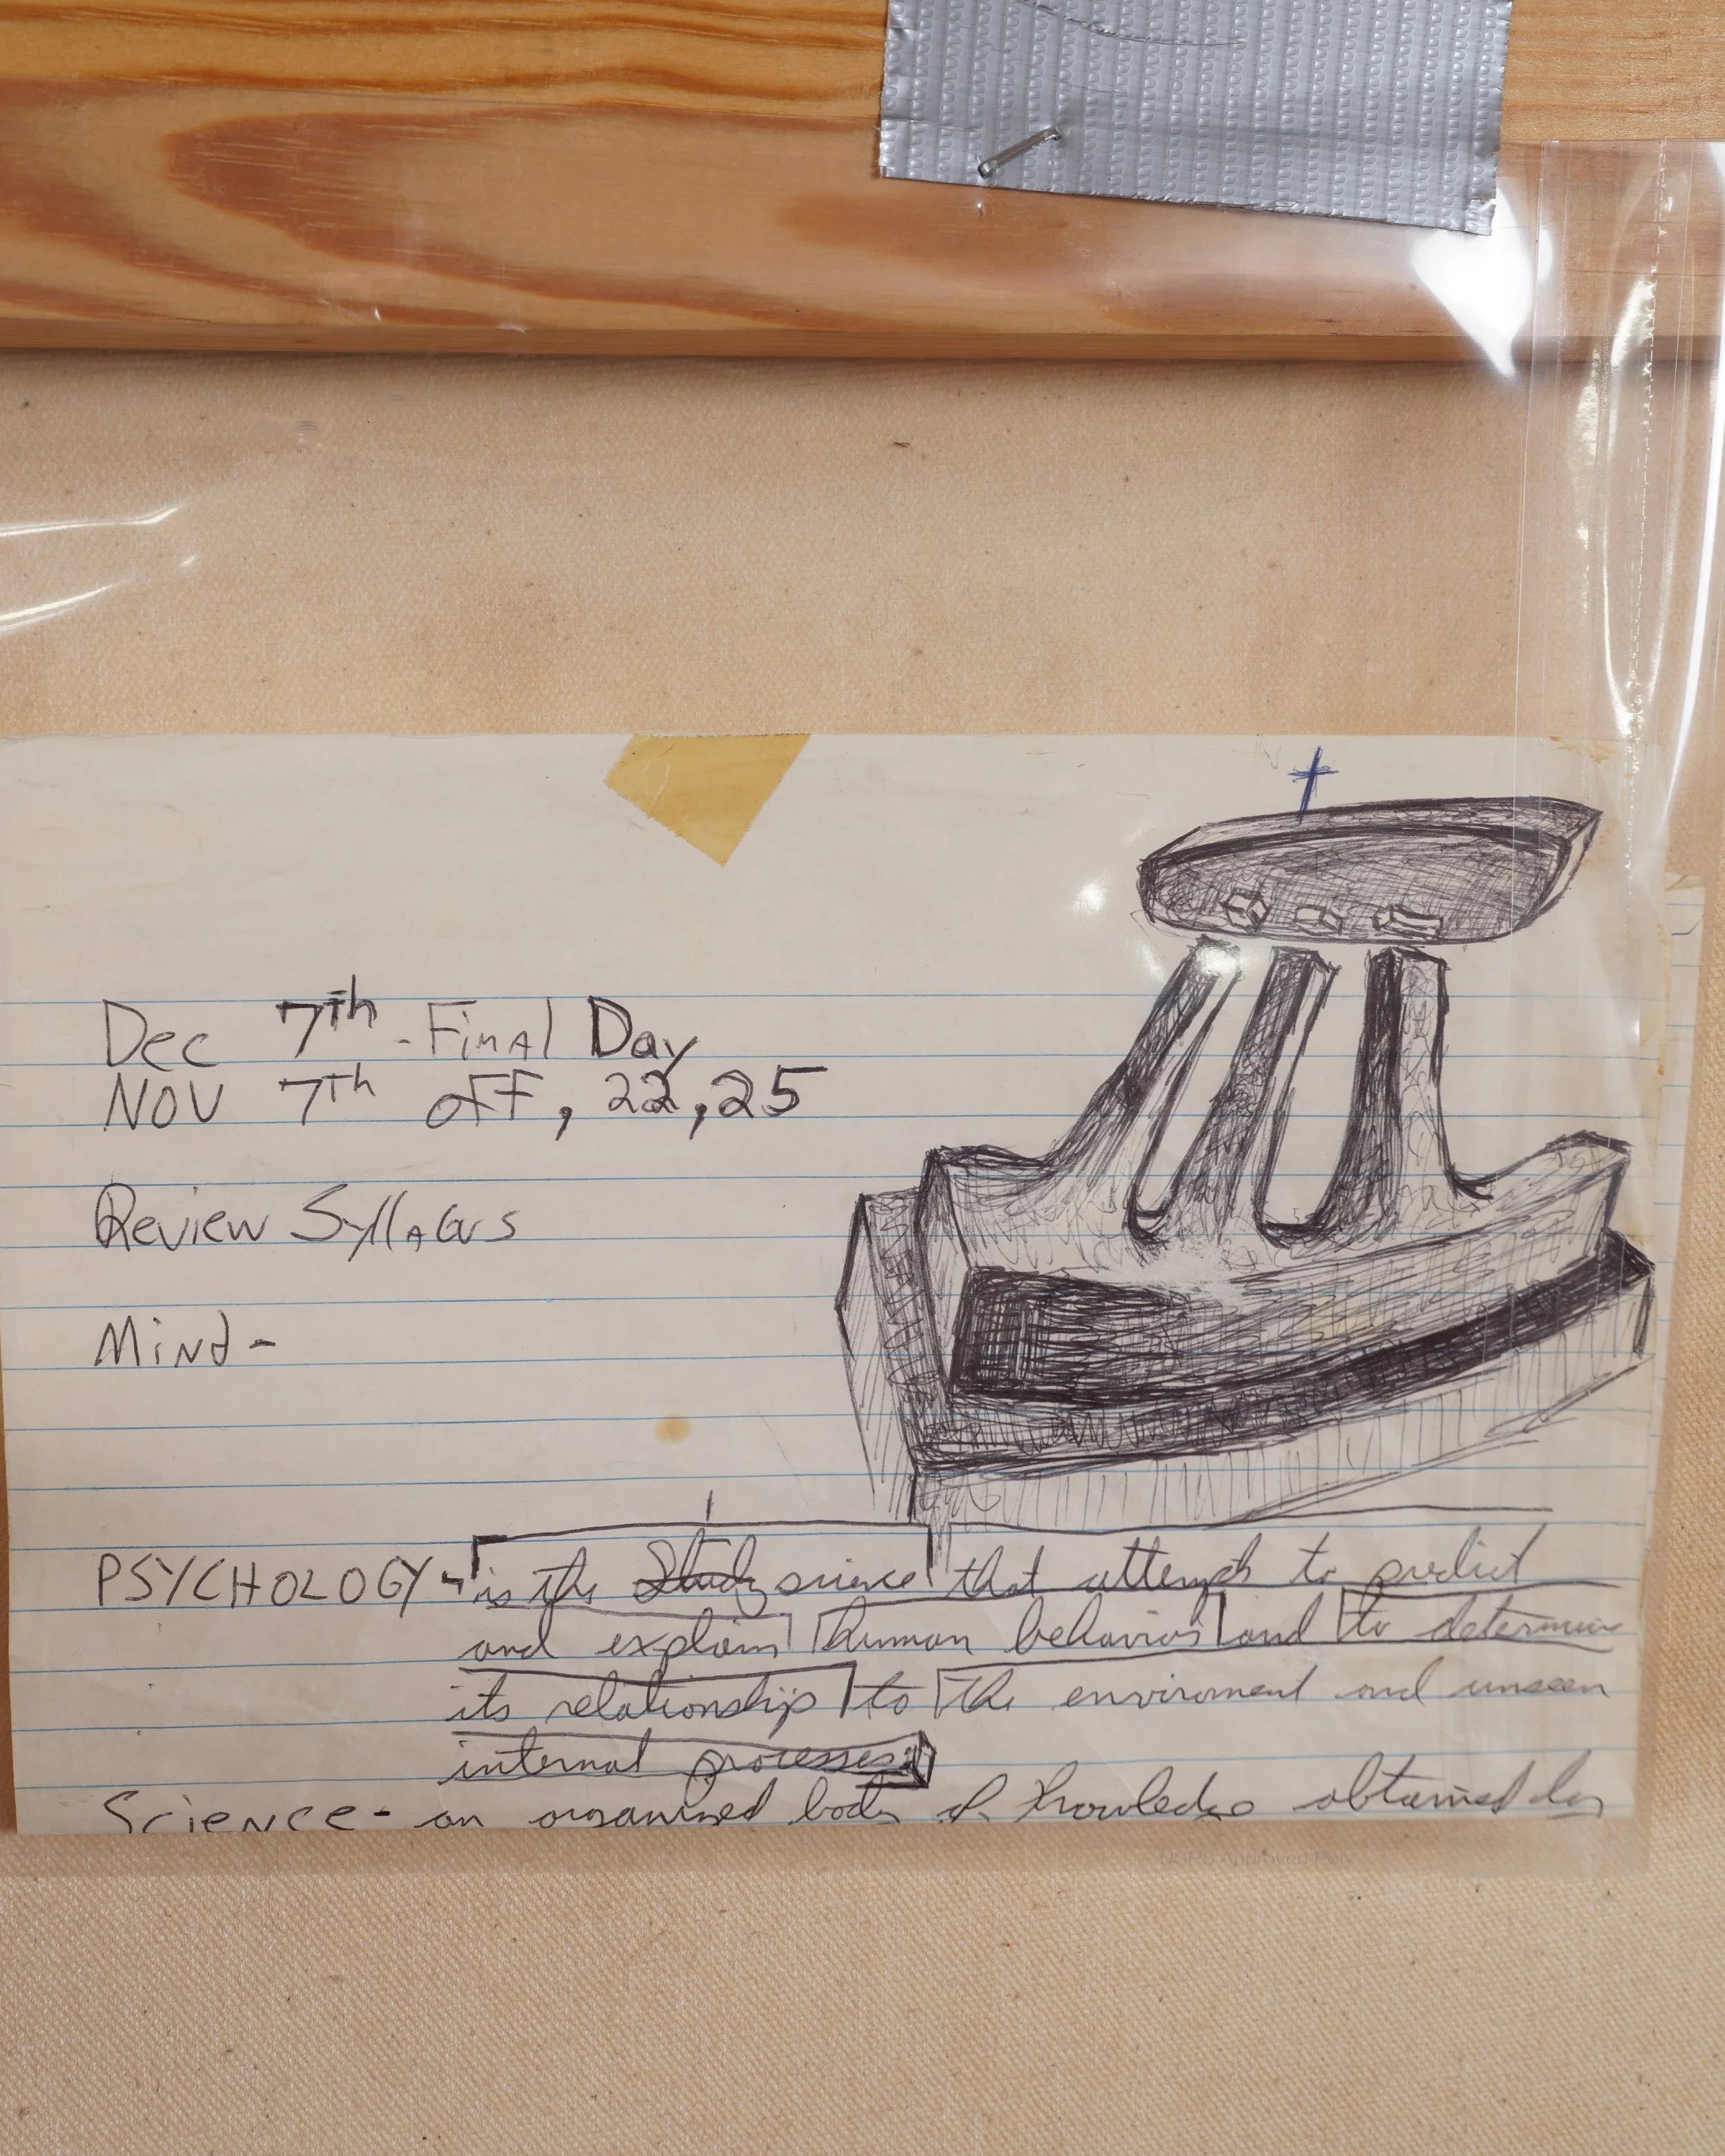 Dec 7th - Final Day
NOV 7th off, 22, 25
Review Syllabus
Mind -
PSYCHOLOGY - is the Study science that attempts to predict
and explain human behavior and to determine
its relationship to the enviroment and unseen
internal processes.
Science - an organized body of knowledge obtained by
USPS Approved Poly